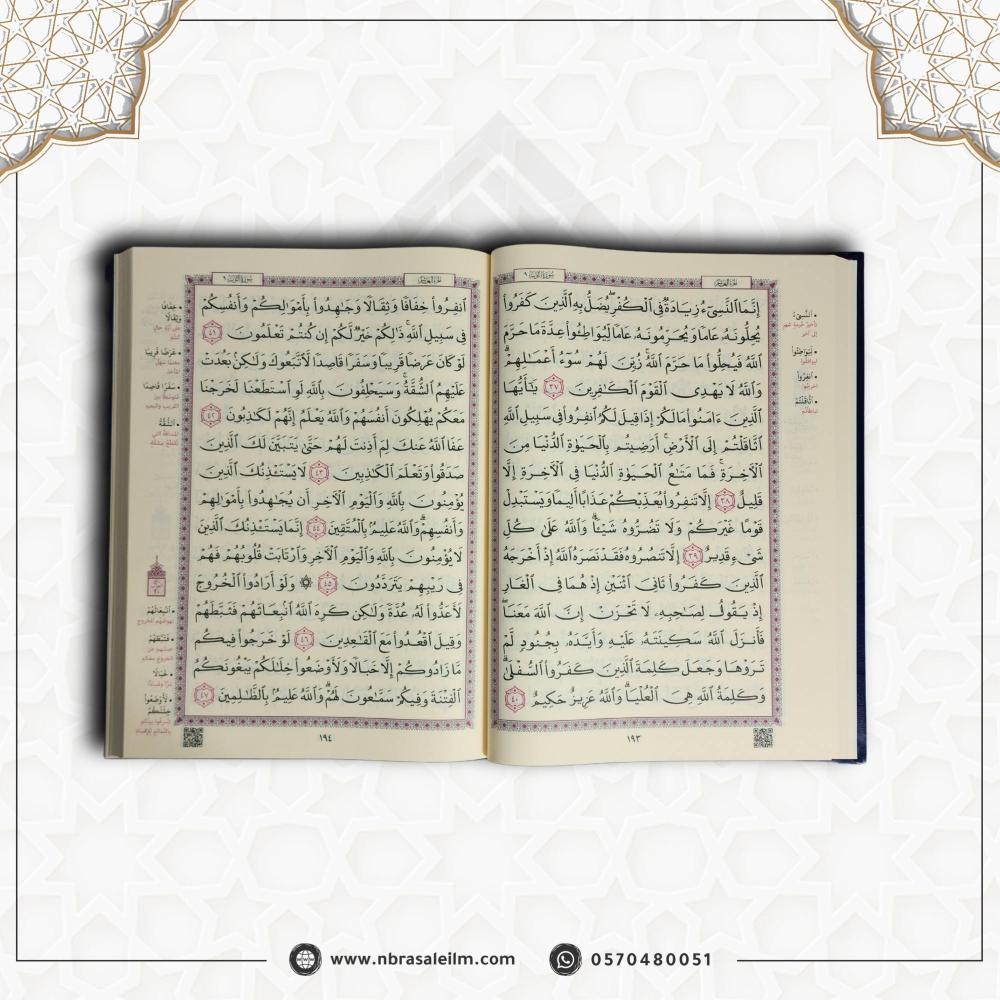 سورة التوبة ٩
الجزء العاشر
إِنَّمَا ٱلنَّسِىٓءُ زِيَادَةٌ فِى ٱلْكُفْرِ يُضَلُّ بِهِ ٱلَّذِينَ كَفَرُوا۟
يُحِلُّونَهُۥ عَامًا وَيُحَرِّمُونَهُۥ عَامًا لِّيُوَاطِـُٔوا۟ عِدَّةَ مَا حَرَّمَ
ٱللَّهُ فَيُحِلُّوا۟ مَا حَرَّمَ ٱللَّهُ ۚ زُيِّنَ لَهُمْ سُوٓءُ أَعْمَـٰلِهِمْ ۗ
وَٱللَّهُ لَا يَهْدِى ٱلْقَوْمَ ٱلْكَـٰفِرِينَ ٣٧ يَـٰٓأَيُّهَا
ٱلَّذِينَ ءَامَنُوا۟ مَا لَكُمْ إِذَا قِيلَ لَكُمُ ٱنفِرُوا۟ فِى سَبِيلِ ٱللَّهِ
ٱثَّاقَلْتُمْ إِلَى ٱلْأَرْضِ ۚ أَرَضِيتُم بِٱلْحَيَوٰةِ ٱلدُّنْيَا مِنَ
ٱلْـَٔاخِرَةِ ۚ فَمَا مَتَـٰعُ ٱلْحَيَوٰةِ ٱلدُّنْيَا فِى ٱلْـَٔاخِرَةِ إِلَّا
قَلِيلٌ ٣٨ إِلَّا تَنفِرُوا۟ يُعَذِّبْكُمْ عَذَابًا أَلِيمًا وَيَسْتَبْدِلْ
قَوْمًا غَيْرَكُمْ وَلَا تَضُرُّوهُ شَيْـًٔا ۗ وَٱللَّهُ عَلَىٰ كُلِّ
شَىْءٍ قَدِيرٌ ٣٩ إِلَّا تَنصُرُوهُ فَقَدْ نَصَرَهُ ٱللَّهُ إِذْ أَخْرَجَهُ
ٱلَّذِينَ كَفَرُوا۟ ثَانِىَ ٱثْنَيْنِ إِذْ هُمَا فِى ٱلْغَارِ
إِذْ يَقُولُ لِصَـٰحِبِهِۦ لَا تَحْزَنْ إِنَّ ٱللَّهَ مَعَنَا ۖ
فَأَنزَلَ ٱللَّهُ سَكِينَتَهُۥ عَلَيْهِ وَأَيَّدَهُۥ بِجُنُودٍ لَّمْ
تَرَوْهَا وَجَعَلَ كَلِمَةَ ٱلَّذِينَ كَفَرُوا۟ ٱلسُّفْلَىٰ ۗ
وَكَلِمَةُ ٱللَّهِ هِىَ ٱلْعُلْيَا ۗ وَٱللَّهُ عَزِيزٌ حَكِيمٌ ٤٠
١٩٣
• النَّسِيءُ
تأخير حرمة شهر
إلى آخر
• لِيُوَاطِئُوا
ليوافقوا
• انْفِرُوا
اخرجوا
• اثَّاقَلْتُمْ
تباطأتم
سورة التوبة ٩
الجزء العاشر
ٱنفِرُوا۟ خِفَافًا وَثِقَالًا وَجَـٰهِدُوا۟ بِأَمْوَٰلِكُمْ وَأَنفُسِكُمْ
فِى سَبِيلِ ٱللَّهِ ۚ ذَٰلِكُمْ خَيْرٌ لَّكُمْ إِن كُنتُمْ تَعْلَمُونَ ٤١
لَوْ كَانَ عَرَضًا قَرِيبًا وَسَفَرًا قَاصِدًا لَّٱتَّبَعُوكَ وَلَـٰكِنۢ بَعُدَتْ
عَلَيْهِمُ ٱلشُّقَّةُ ۚ وَسَيَحْلِفُونَ بِٱللَّهِ لَوِ ٱسْتَطَعْنَا لَخَرَجْنَا
مَعَكُمْ يُهْلِكُونَ أَنفُسَهُمْ وَٱللَّهُ يَعْلَمُ إِنَّهُمْ لَكَـٰذِبُونَ ٤٢
عَفَا ٱللَّهُ عَنكَ لِمَ أَذِنتَ لَهُمْ حَتَّىٰ يَتَبَيَّنَ لَكَ ٱلَّذِينَ
صَدَقُوا۟ وَتَعْلَمَ ٱلْكَـٰذِبِينَ ٤٣ لَا يَسْتَـْٔذِنُكَ ٱلَّذِينَ
يُؤْمِنُونَ بِٱللَّهِ وَٱلْيَوْمِ ٱلْـَٔاخِرِ أَن يُجَـٰهِدُوا۟ بِأَمْوَٰلِهِمْ
وَأَنفُسِهِمْ ۗ وَٱللَّهُ عَلِيمٌۢ بِٱلْمُتَّقِينَ ٤٤ إِنَّمَا يَسْتَـْٔذِنُكَ ٱلَّذِينَ
لَا يُؤْمِنُونَ بِٱللَّهِ وَٱلْيَوْمِ ٱلْـَٔاخِرِ وَٱرْتَابَتْ قُلُوبُهُمْ فَهُمْ
فِى رَيْبِهِمْ يَتَرَدَّدُونَ ٤٥ ۞ وَلَوْ أَرَادُوا۟ ٱلْخُرُوجَ
لَأَعَدُّوا۟ لَهُۥ عُدَّةً وَلَـٰكِن كَرِهَ ٱللَّهُ ٱنۢبِعَاثَهُمْ فَثَبَّطَهُمْ
وَقِيلَ ٱقْعُدُوا۟ مَعَ ٱلْقَـٰعِدِينَ ٤٦ لَوْ خَرَجُوا۟ فِيكُم
مَّا زَادُوكُمْ إِلَّا خَبَالًا وَلَأَوْضَعُوا۟ خِلَـٰلَكُمْ يَبْغُونَكُمُ
ٱلْفِتْنَةَ وَفِيكُمْ سَمَّـٰعُونَ لَهُمْ ۗ وَٱللَّهُ عَلِيمٌۢ بِٱلظَّـٰلِمِينَ ٤٧
١٩٤
• خِفَافًا
وَثِقَالًا
• عَرَضًا قَرِيبًا
• سَفَرًا قَاصِدًا
• الشُّقَّةُ
• انْبِعَاثَهُمْ
نهوضهم للخروج
• فَثَبَّطَهُمْ
• خَبَالًا
• لَأَوْضَعُوا
خِلَالَكُمْ
www.nbrasaleilm.com
0570480051